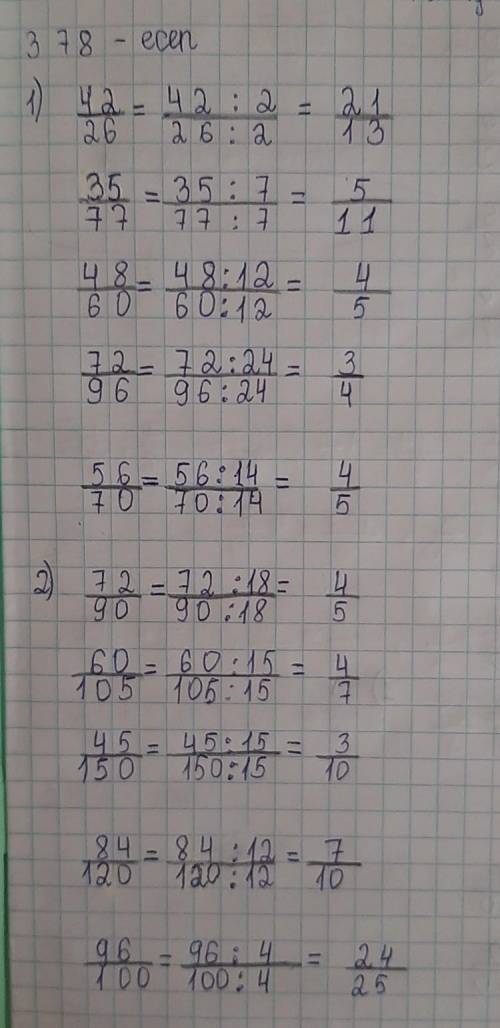 378 - есеп
1) 42/26 = 42 : 2/26 : 2 = 21/13
35/77 = 35 : 7/77 : 7 = 5/11
48/60 = 48:12/60:12 = 4/5
72/96 = 72:24/96:24 = 3/4
56/70 = 56:14/70:14 = 4/5
2) 72/90 = 72:18/90:18 = 4/5
60/105 = 60:15/105:15 = 4/7
45/150 = 45:15/150:15 = 3/10
84/120 = 84:12/120:12 = 7/10
96/100 = 96: 4/100:4 = 24/25